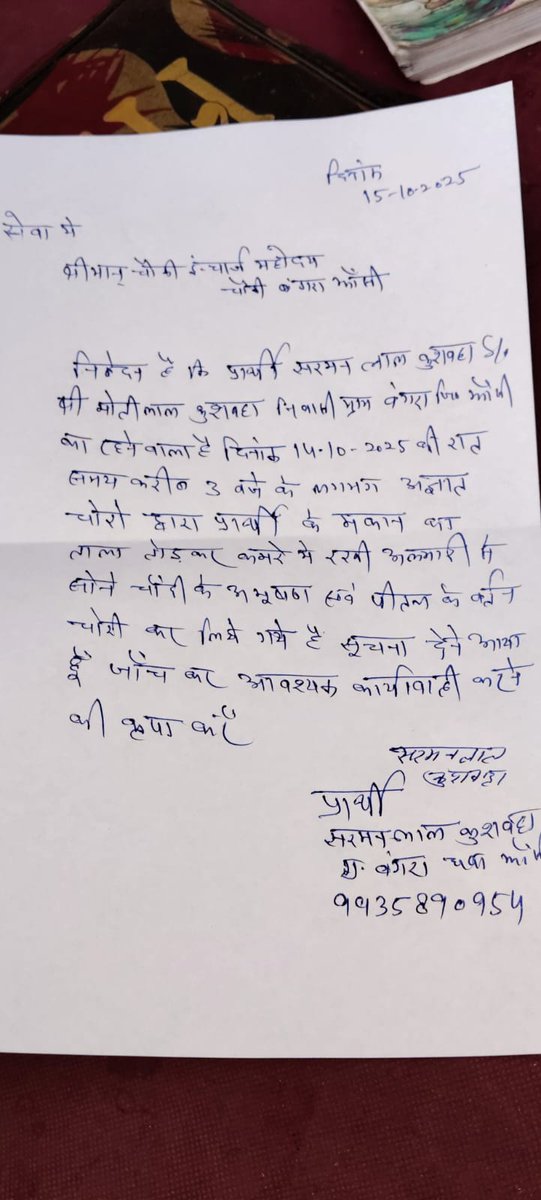 दिनांक
15-10-2025
सेवा में
श्रीमान् चौकी इंचार्ज महोदय
चौकी बंगरा झाँसी
निवेदन है कि प्रार्थी सरमन लाल कुशवाहा S/o
श्री मोतीलाल कुशवाहा निवासी ग्राम बंगरा जि० झाँसी
का रहने वाला है दिनांक 14-10-2025 की रात
समय करीब 3 बजे के लगभग अज्ञात
चोरो द्वारा प्रार्थी के मकान का
ताला तोड़कर कमरे मे रखी अलमारी से
सोने चाँदी के अभूषण एवं पीतल के बर्तन
चोरी कर लिये गये है सूचना देने आया
हूँ जाँच कर आवश्यक कार्यवाही करने
की कृपा करें
सरमनलाल
कुशवाहा
प्रार्थी
सरमनलाल कुशवाहा
ग्रा. बंगरा झाँसी
9935890954